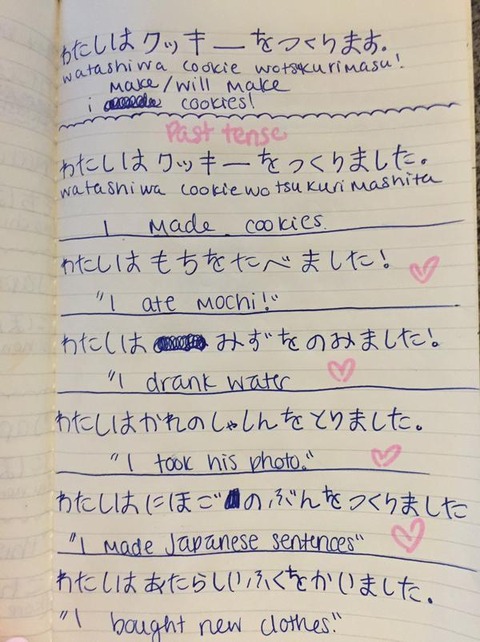 わたしはクッキーをつくります。
watashiwa cookie wotsukurimasu!
make/will make
i cookies!
Past tense
わたしはクッキーをつくりました。
watashiwa cookiewo tsukuri mashita
I made cookies.
わたしはもちをたべました!
"I ate mochi!"
わたしは みずをのみました!
"I drank water
わたしはかれのしゃしんをとりました。
"I took his photo."
わたしはにほごのぶんをつくりました
"I made Japanese sentences"
わたしはあたらしいふくをかいました。
"I bought new clothes."